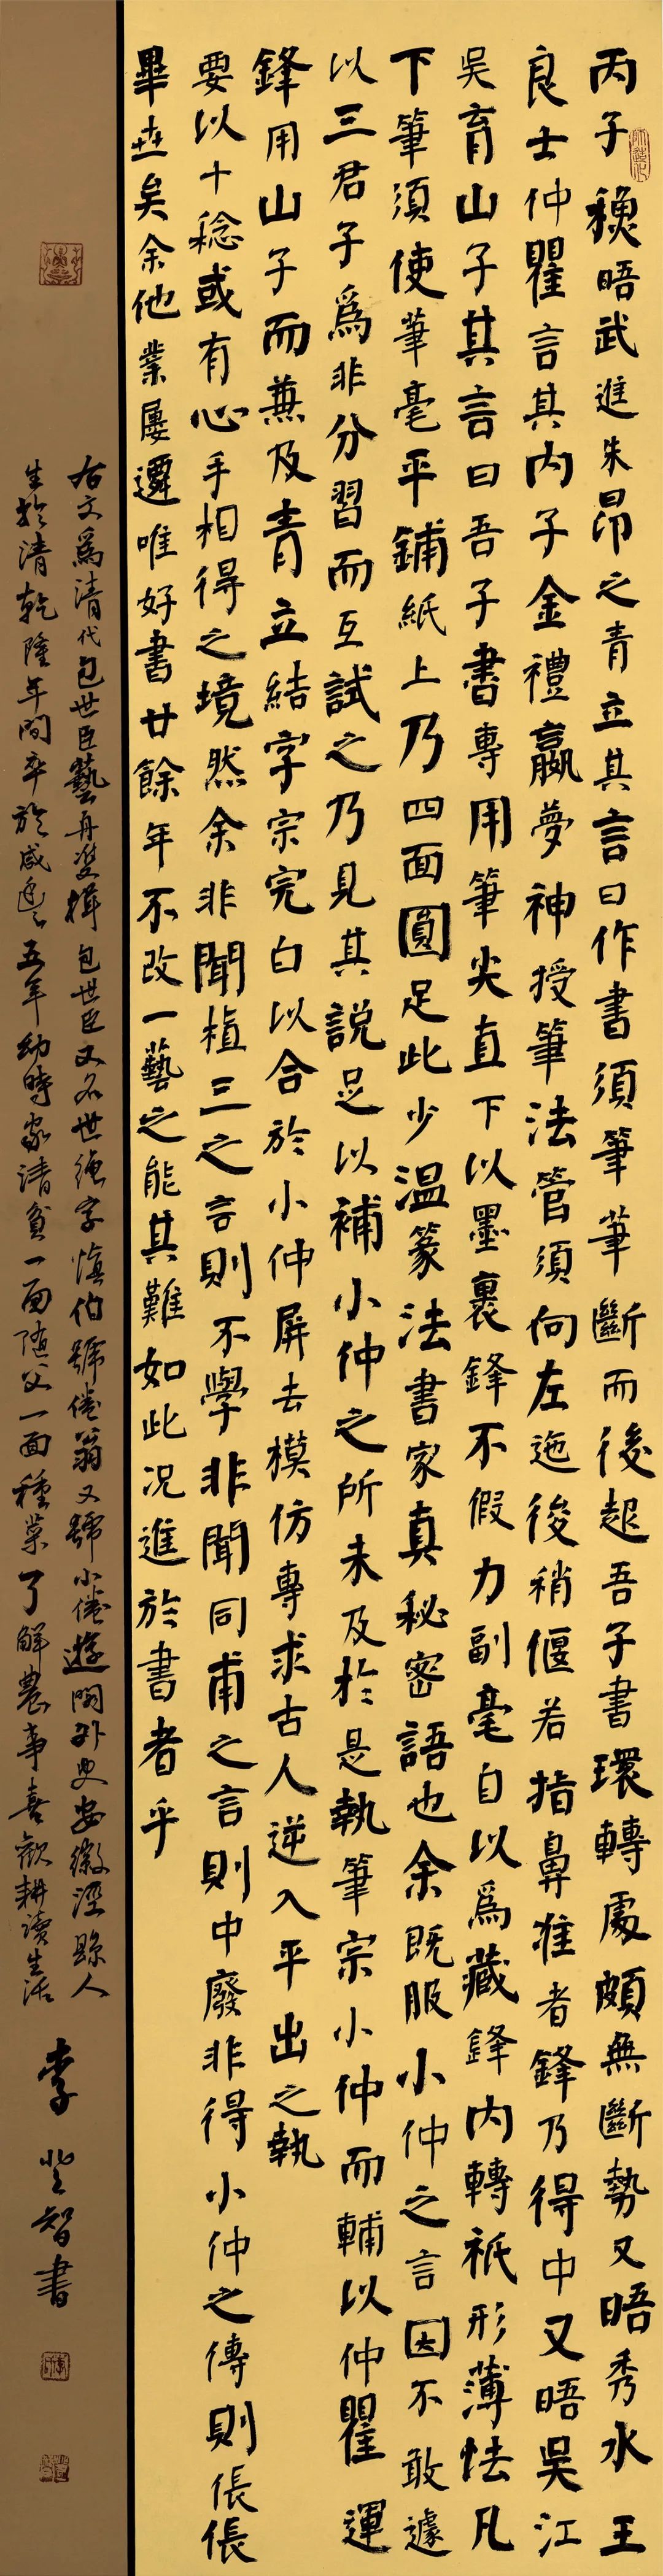 丙子穐晤武進朱昂之青立其言曰作書須筆筆斷而後起吾子書環轉處頗無斷勢又晤秀水王
良士仲瞿言其內子金禮嬴夢神授筆法管須向左迤後稍偃若指鼻準者鋒乃得中又晤吳江
吳育山子其言曰吾子書專用筆尖直下以墨裹鋒不假力副毫自以為藏鋒內轉祇形薄怯凡
下筆須使筆毫平鋪紙上乃四面圓足此少溫篆法書家真秘密語也余既服小仲之言因不敢遽
以三君子為非分習而互試之乃見其說足以補小仲之所未及於是執筆宗小仲而輔以仲瞿運
鋒用山子而兼及青立結字宗完白以合於小仲屏去模仿專求古人逆入平出之執
要以十稔或有心手相得之境然余非聞植三之言則不學非聞同甫之言則中廢非得小仲之傳則倀倀
畢世矣余他業屢遷唯好書廿餘年不改一藝之能其難如此况進於書者乎
右文為清代包世臣藝舟雙楫包世臣又名世繩字慎伯號倦翁又號小倦遊閣外史安徽涇縣人
生於清乾隆年間卒於咸豐五年幼時家清貧一面隨父一面種菜了解農事喜歡耕讀生活
李登智書